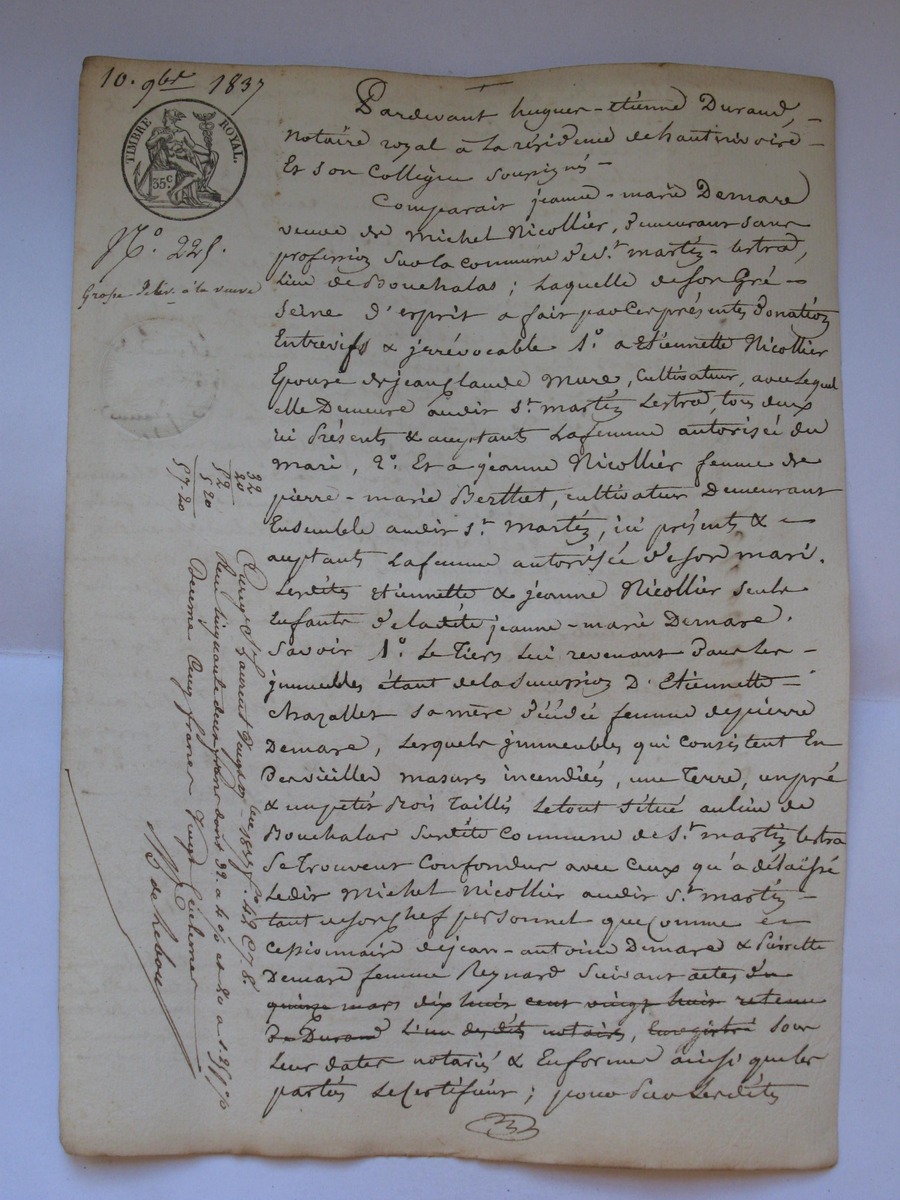 10. 9bre 1837
TIMBRE ROYAL.
35c.
N.° 225.
Grosse deliv. à la veuve
Pardevant hugues-etienne Durand,
Notaire royal à la résidence de hauterivoire
Et son Collègue soussignés
Comparait jeanne-marie Demare
veuve de Michel Nicollier, demeurant sans
profession sur la commune de St. martin-lestra,
lieu de Bouchalas; laquelle de son gré
Seine d'esprit a fait par ces présentes donation
Entrevifs & jrrévocable 1.° a Etiennette Nicollier
Epouse de jean claude Mure, Cultivateur, avec lequel
elle Demeure audit St. martin Lestra, tous deux
ici Présents & acceptants la femme autorisée du
mari, 2.° Et a jeanne Nicollier femme de
pierre-marie Berthet, cultivateur Demeurant
Ensemble audit St. martin, ici présents &
acceptants la femme autorisée de son mari.
Lesdites etiennette & jeanne Nicollier seules
Enfants de ladite jeanne-marie Demare.
Savoir 1.° Le Tiers lui revenant dans les
jmmeubles étant de la succession D'Etiennette
chazalles sa mère décédée femme de pierre
Demare, lesquels jmmeubles qui consistent En
De vieilles masures incendiées, une Terre, un pré
& un petit Bois Taillis le tout situé au lieu de
Bouchalas susdite commune de St. martin lestra
Se trouvent Confondus avec ceux qu'a délaissé
Ledit Michel Nicollier audit St. martin
tant de son chef personnel que comme
Cessionnaire de jean-antoine Demare & Pierrette
Demare femme Reynard suivant actes du
quinze mars dix huit cent vingt huit retenu
Me Durand l'un desdits notaires, Enregistré sous
Leur dates notariés & Enformes ainsi que les
parties le certifient; pour Par lesdites
32
20
52
5 20
57.20
Reçu cinquante deux francs dont 32. a 4 % et 20 a
Decime Cinq francs Vingt Centimes